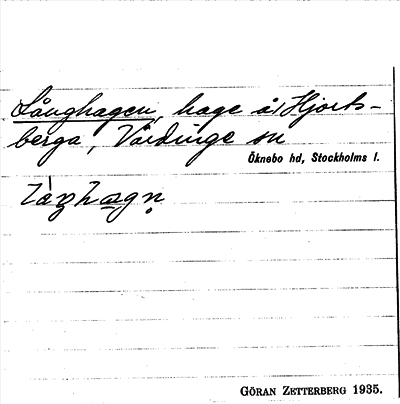 Långhagen, hage å Hjorts-
berga, Vårdinge sn
Öknebo hd, Stockholms l.
làŋhagn̥
GÖRAN ZETTERBERG 1935.